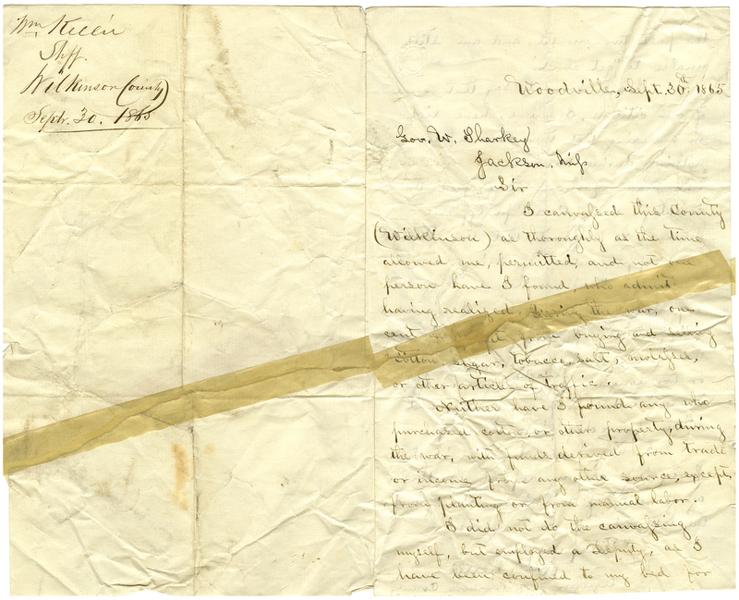 Wm. Killin
Shff.
Wilkinson County
Septr. 30. 1865
Woodville, Sept. 30th, 1865
Gov. W. Sharkey
Jackson, Miss
Sir
I canvassed this County
(Wilkinson) as thoroughly as the time
allowed me, permitted, and not one
person have I found, who admit
having realized, during the war, one
cent from buying and
cotton, sugar, tobacco, salt, molasses,
or other articles of traffic.
Neither have I found any who
purchased or other property, during
the war, with funds derived from trade
or income from any other source, except
from planting or from manual labor.
I did not do the canvassing
myself, but employed a Deputy, as I
have been confined to my bed for